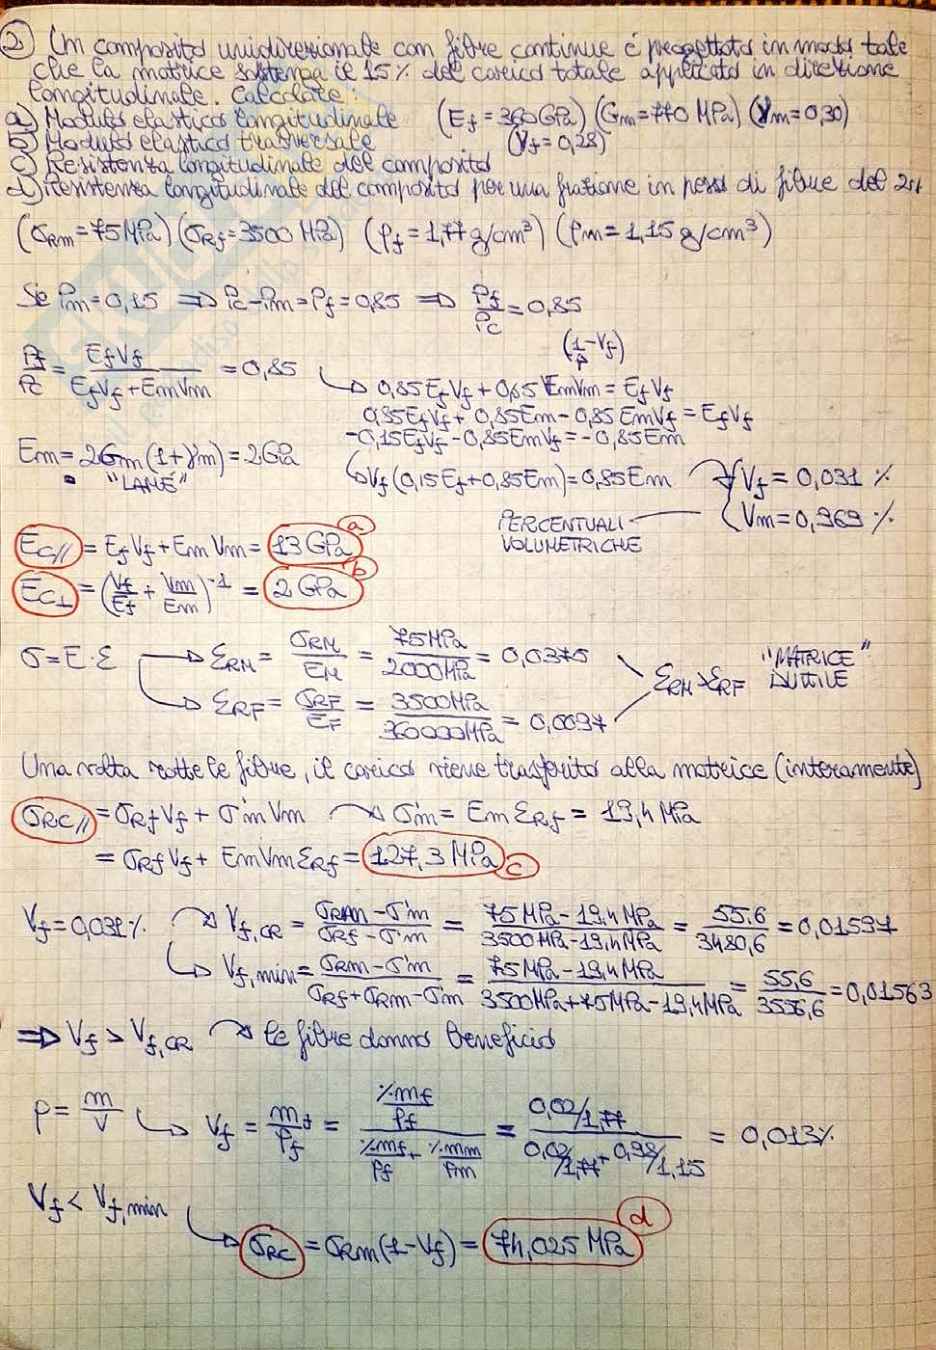 2) Un composito unidirezionale con fibre continue è progettato in modo tale
che la matrice sostenga il 15% del carico totale applicato in direzione
longitudinale. Calcolare:
a) Modulo elastico longitudinale (Ef = 360GPa) (Gm = 770 MPa) (γm = 0,30)
b) Modulo elastico trasversale (γf = 0,28)
c) Resistenza longitudinale del composito
d) Resistenza longitudinale del composito per una frazione in peso di fibre del 2%
(σRm = 75MPa) (σRf = 3500 MPa) (ρf = 1,77 g/cm³) (ρm = 1,15 g/cm³)
Se Pm = 0,15 ⇒ Pc-Pm = Pf = 0,85 ⇒ Pf/Pc = 0,85
(1-Vf)
Pf/Pc = EfVf / (EfVf + EmVm) = 0,85 → 0,85 EfVf + 0,85 EmVm = EfVf
0,85EfVf + 0,85Em - 0,85 EmVf = EfVf
-0,15EfVf - 0,85EmVf = -0,85Em
Em = 2Gm(1+γm) = 2GPa → Vf(0,15Ef + 0,85Em) = 0,85Em → Vf = 0,031 %
"LAMÉ"
PERCENTUALI VOLUMETRICHE Vm = 0,969 %
Ec// = EfVf + EmVm = 13 GPa a
Ec⊥ = (Vf/Ef + Vm/Em)⁻¹ = 2 GPa b
σ = E·ε → εRM = σRM/EM = 75MPa/2000MPa = 0,0375
→ εRF = σRF/EF = 3500MPa/360000MPa = 0,0097
εRM > εRF "MATRICE DUTTILE"
Una volta rotte le fibre, il carico viene trasferito alla matrice (interamente)
σRC// = σRfVf + σ'mVm → σ'm = EmεRf = 19,4 MPa
= σRfVf + EmVmεRf = 127,3 MPa c
Vf = 0,031% → Vf,CR = (σRM - σ'm)/(σRf - σ'm) = (75MPa - 19,4MPa)/(3500MPa - 19,4MPa) = 55.6/3480,6 = 0,01597
→ Vf,min = (σRm - σ'm)/(σRf + σRm - σm) = (75MPa - 19,4MPa)/(3500MPa + 75MPa - 19,4MPa) = 55,6/3556,6 = 0,01563
⇒ Vf > Vf,CR → le fibre danno beneficio
ρ = m/V → Vf = mf/ρf = (%mf/ρf)/(%mf/ρf + %mm/ρm) = (0,02/1,77)/(0,02/1,77 + 0,98/1,15) = 0,013%
Vf < Vf,min
→ σRC = σRm(1-Vf) = 74,025 MPa d